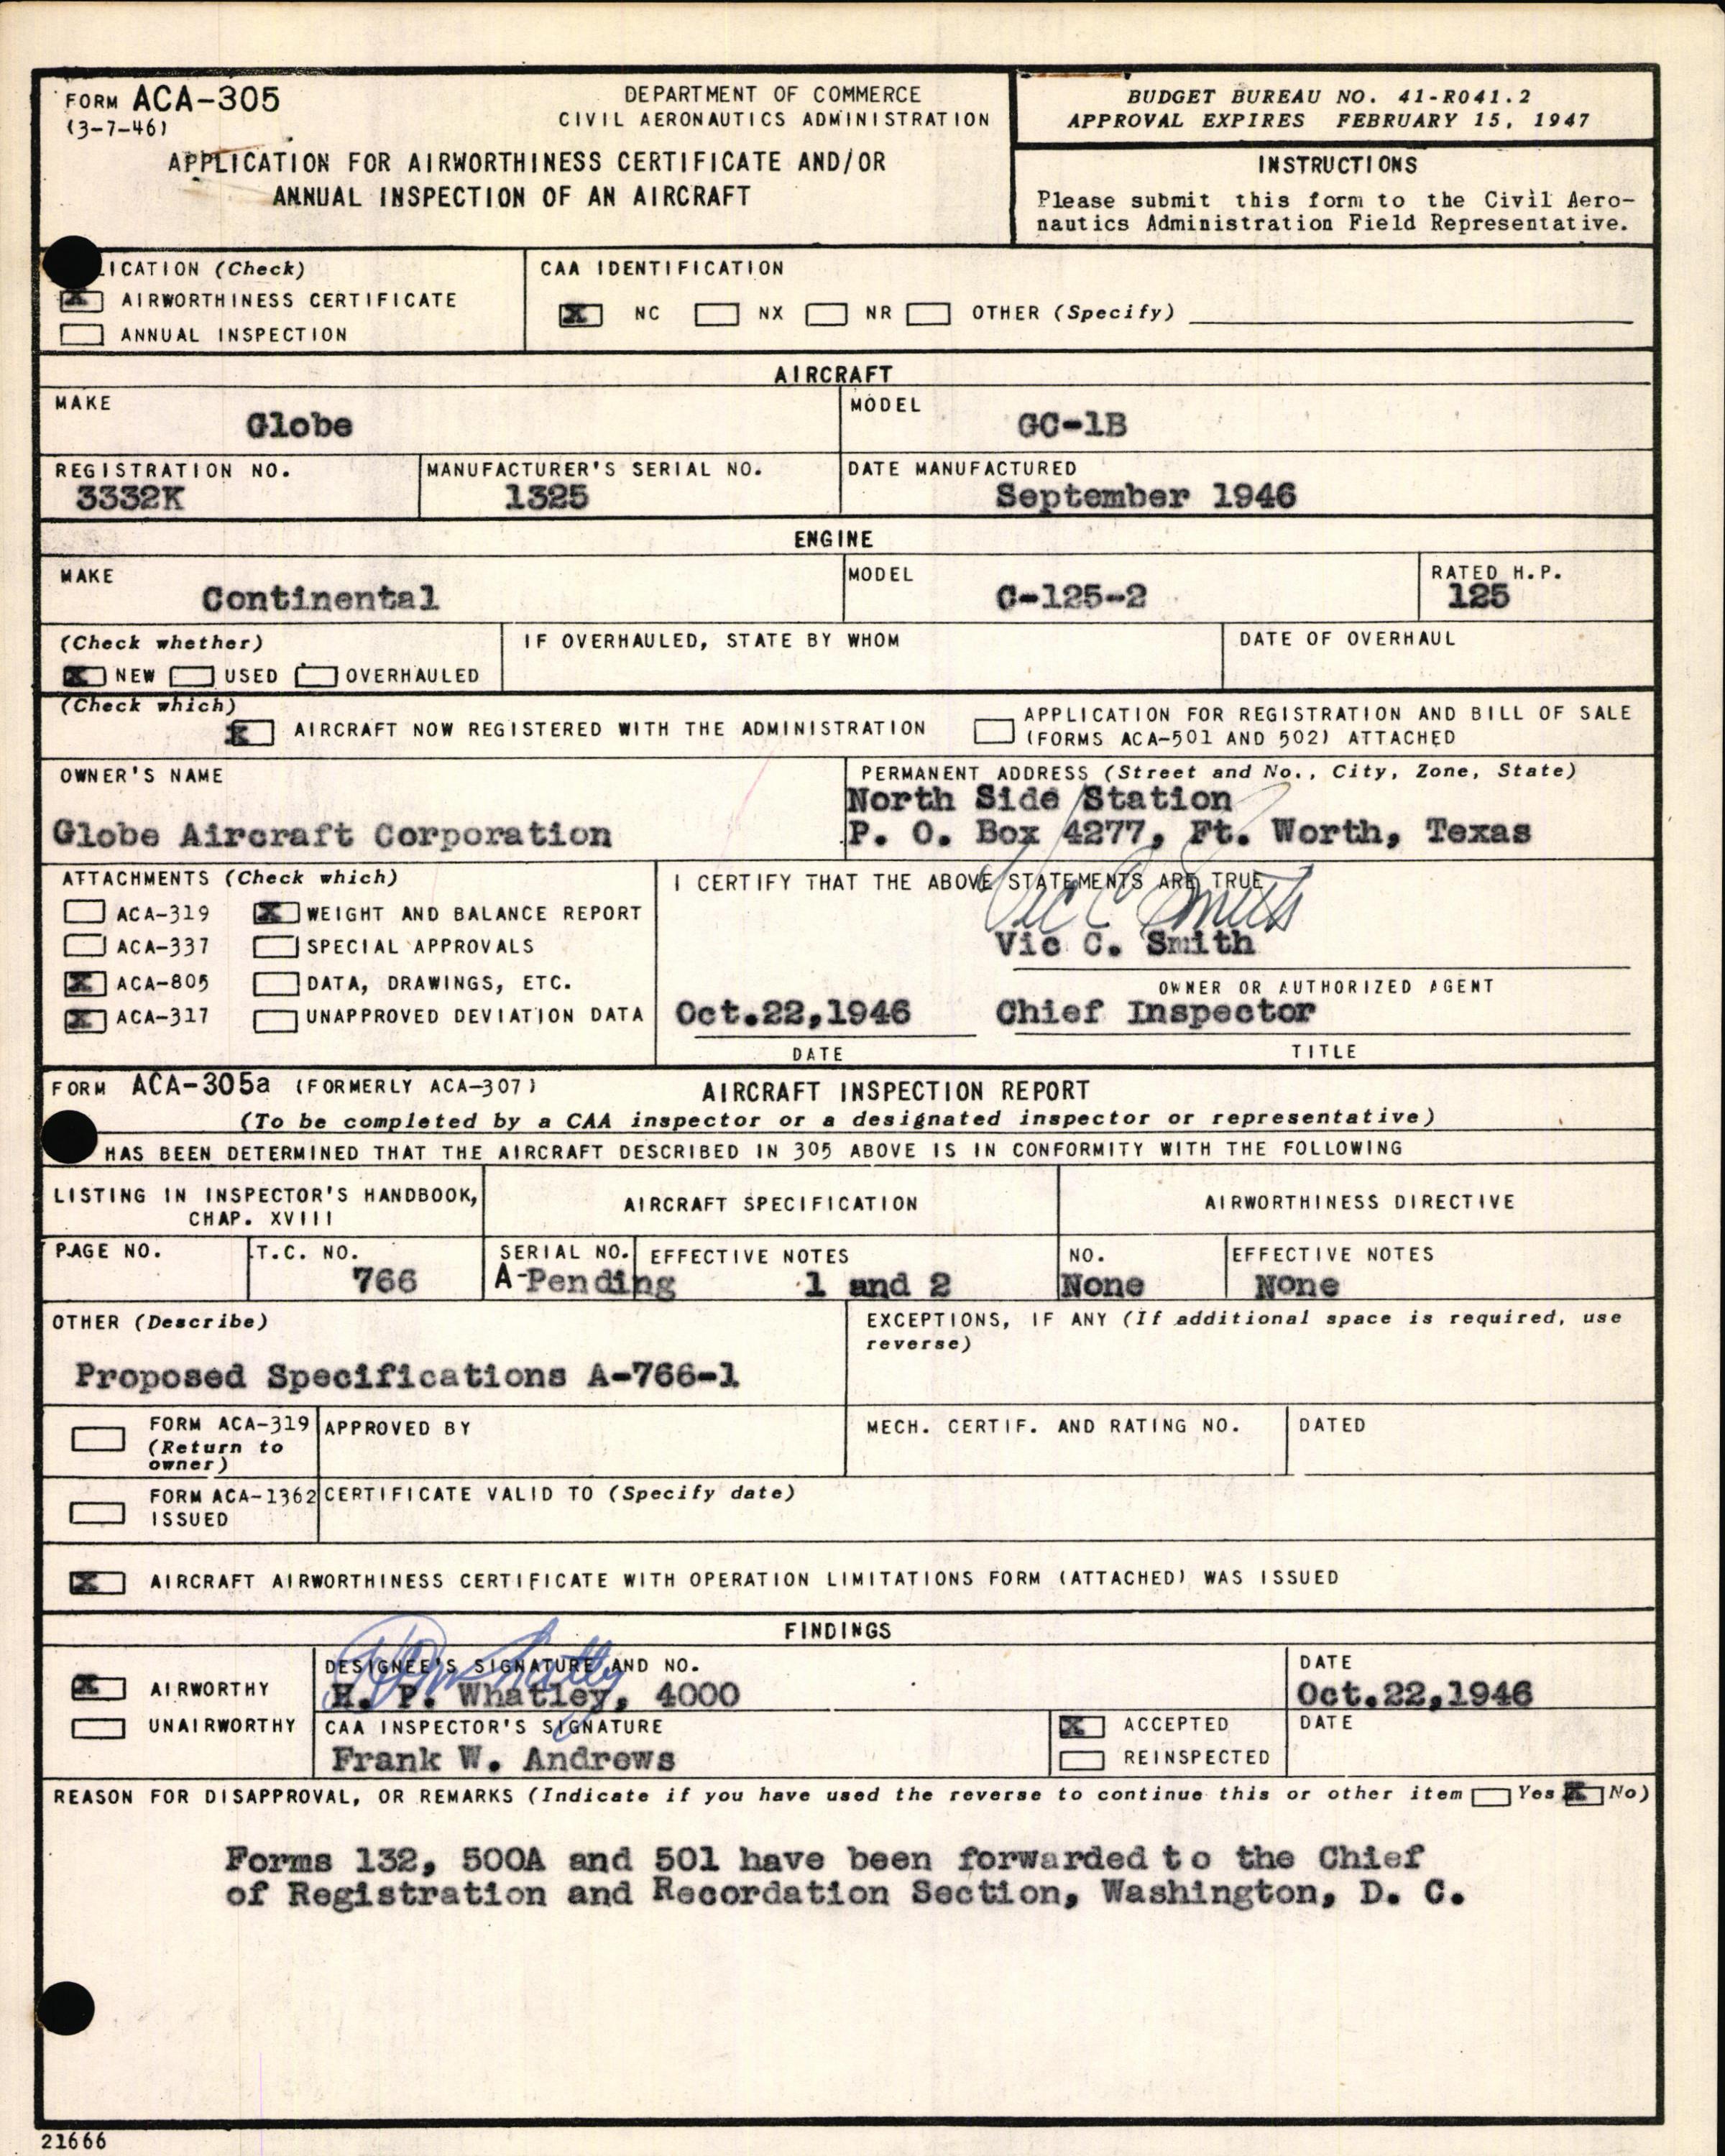 FORM ACA-305
(3-7-46)
DEPARTMENT OF COMMERCE
CIVIL AERONAUTICS ADMINISTRATION
APPLICATION FOR AIRWORTHINESS CERTIFICATE AND/OR
ANNUAL INSPECTION OF AN AIRCRAFT
BUDGET BUREAU NO. 41-R041.2
APPROVAL EXPIRES FEBRUARY 15, 1947
INSTRUCTIONS
Please submit this form to the Civil Aero-
nautics Administration Field Representative.
LICATION (Check)
X AIRWORTHINESS CERTIFICATE
ANNUAL INSPECTION
CAA IDENTIFICATION
X NC NX NR OTHER (Specify)
AIRCRAFT
MAKE
Globe
MODEL
GC-1B
REGISTRATION NO.
3332K
MANUFACTURER'S SERIAL NO.
1325
DATE MANUFACTURED
September 1946
ENGINE
MAKE
Continental
MODEL
C-125-2
RATED H.P.
125
(Check whether)
X NEW USED OVERHAULED
IF OVERHAULED, STATE BY WHOM
DATE OF OVERHAUL
(Check which)
X AIRCRAFT NOW REGISTERED WITH THE ADMINISTRATION
APPLICATION FOR REGISTRATION AND BILL OF SALE
(FORMS ACA-501 AND 502) ATTACHED
OWNER'S NAME
Globe Aircraft Corporation
PERMANENT ADDRESS (Street and No., City, Zone, State)
North Side Station
P. O. Box 4277, Ft. Worth, Texas
ATTACHMENTS (Check which)
ACA-319 X WEIGHT AND BALANCE REPORT
ACA-337 SPECIAL APPROVALS
X ACA-805 DATA, DRAWINGS, ETC.
X ACA-317 UNAPPROVED DEVIATION DATA
I CERTIFY THAT THE ABOVE STATEMENTS ARE TRUE
Vic C. Smith
Vic C. Smith
OWNER OR AUTHORIZED AGENT
Oct.22,1946 Chief Inspector
DATE TITLE
FORM ACA-305a (FORMERLY ACA-307) AIRCRAFT INSPECTION REPORT
(To be completed by a CAA inspector or a designated inspector or representative)
HAS BEEN DETERMINED THAT THE AIRCRAFT DESCRIBED IN 305 ABOVE IS IN CONFORMITY WITH THE FOLLOWING
LISTING IN INSPECTOR'S HANDBOOK,
CHAP. XVIII
AIRCRAFT SPECIFICATION
AIRWORTHINESS DIRECTIVE
PAGE NO.
T.C. NO.
766
SERIAL NO.
A-Pending
EFFECTIVE NOTES
1 and 2
NO.
None
EFFECTIVE NOTES
None
OTHER (Describe)
Proposed Specifications A-766-1
EXCEPTIONS, IF ANY (If additional space is required, use
reverse)
FORM ACA-319
(Return to
owner)
APPROVED BY
MECH. CERTIF. AND RATING NO.
DATED
FORM ACA-1362
ISSUED
CERTIFICATE VALID TO (Specify date)
X AIRCRAFT AIRWORTHINESS CERTIFICATE WITH OPERATION LIMITATIONS FORM (ATTACHED) WAS ISSUED
FINDINGS
X AIRWORTHY
UNAIRWORTHY
DESIGNEE'S SIGNATURE AND NO.
H. P. Whatley, 4000
DATE
Oct.22,1946
CAA INSPECTOR'S SIGNATURE
Frank W. Andrews
X ACCEPTED
REINSPECTED
DATE
REASON FOR DISAPPROVAL, OR REMARKS (Indicate if you have used the reverse to continue this or other item Yes X No)
Forms 132, 500A and 501 have been forwarded to the Chief
of Registration and Recordation Section, Washington, D. C.
21666